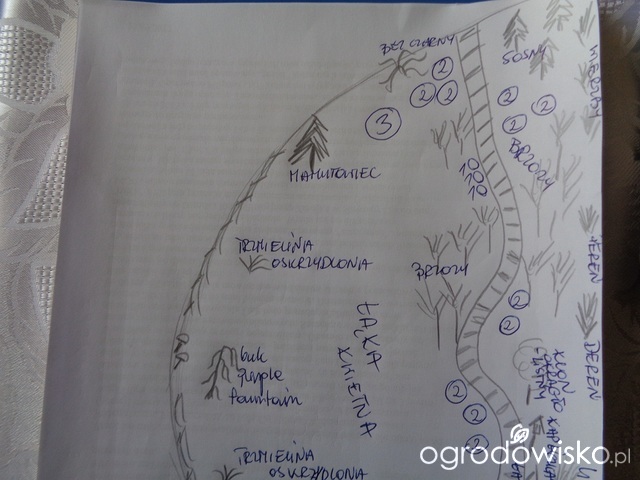 BEZ CZARNY
SOSNY
2
2
2
3
2
2
2
MAMUTOWIEC
BRZOZY
TRZMIELINA
OSKRZYDLONA
BRZOZY
DEREŃ
2
2
ŁĄKA
KWIETNA
buk
Purple
fountain
DEREŃ
KLON
2
2
2
TRZMIELINA
OSKRZYDLONA
ogrodowisko.pl